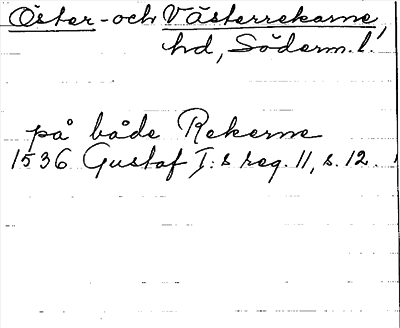 Öster- och Västerrekarne,
hd, Söderm. l.
på både Rekerne
1536 Gustaf I:s reg. 11, s. 12.